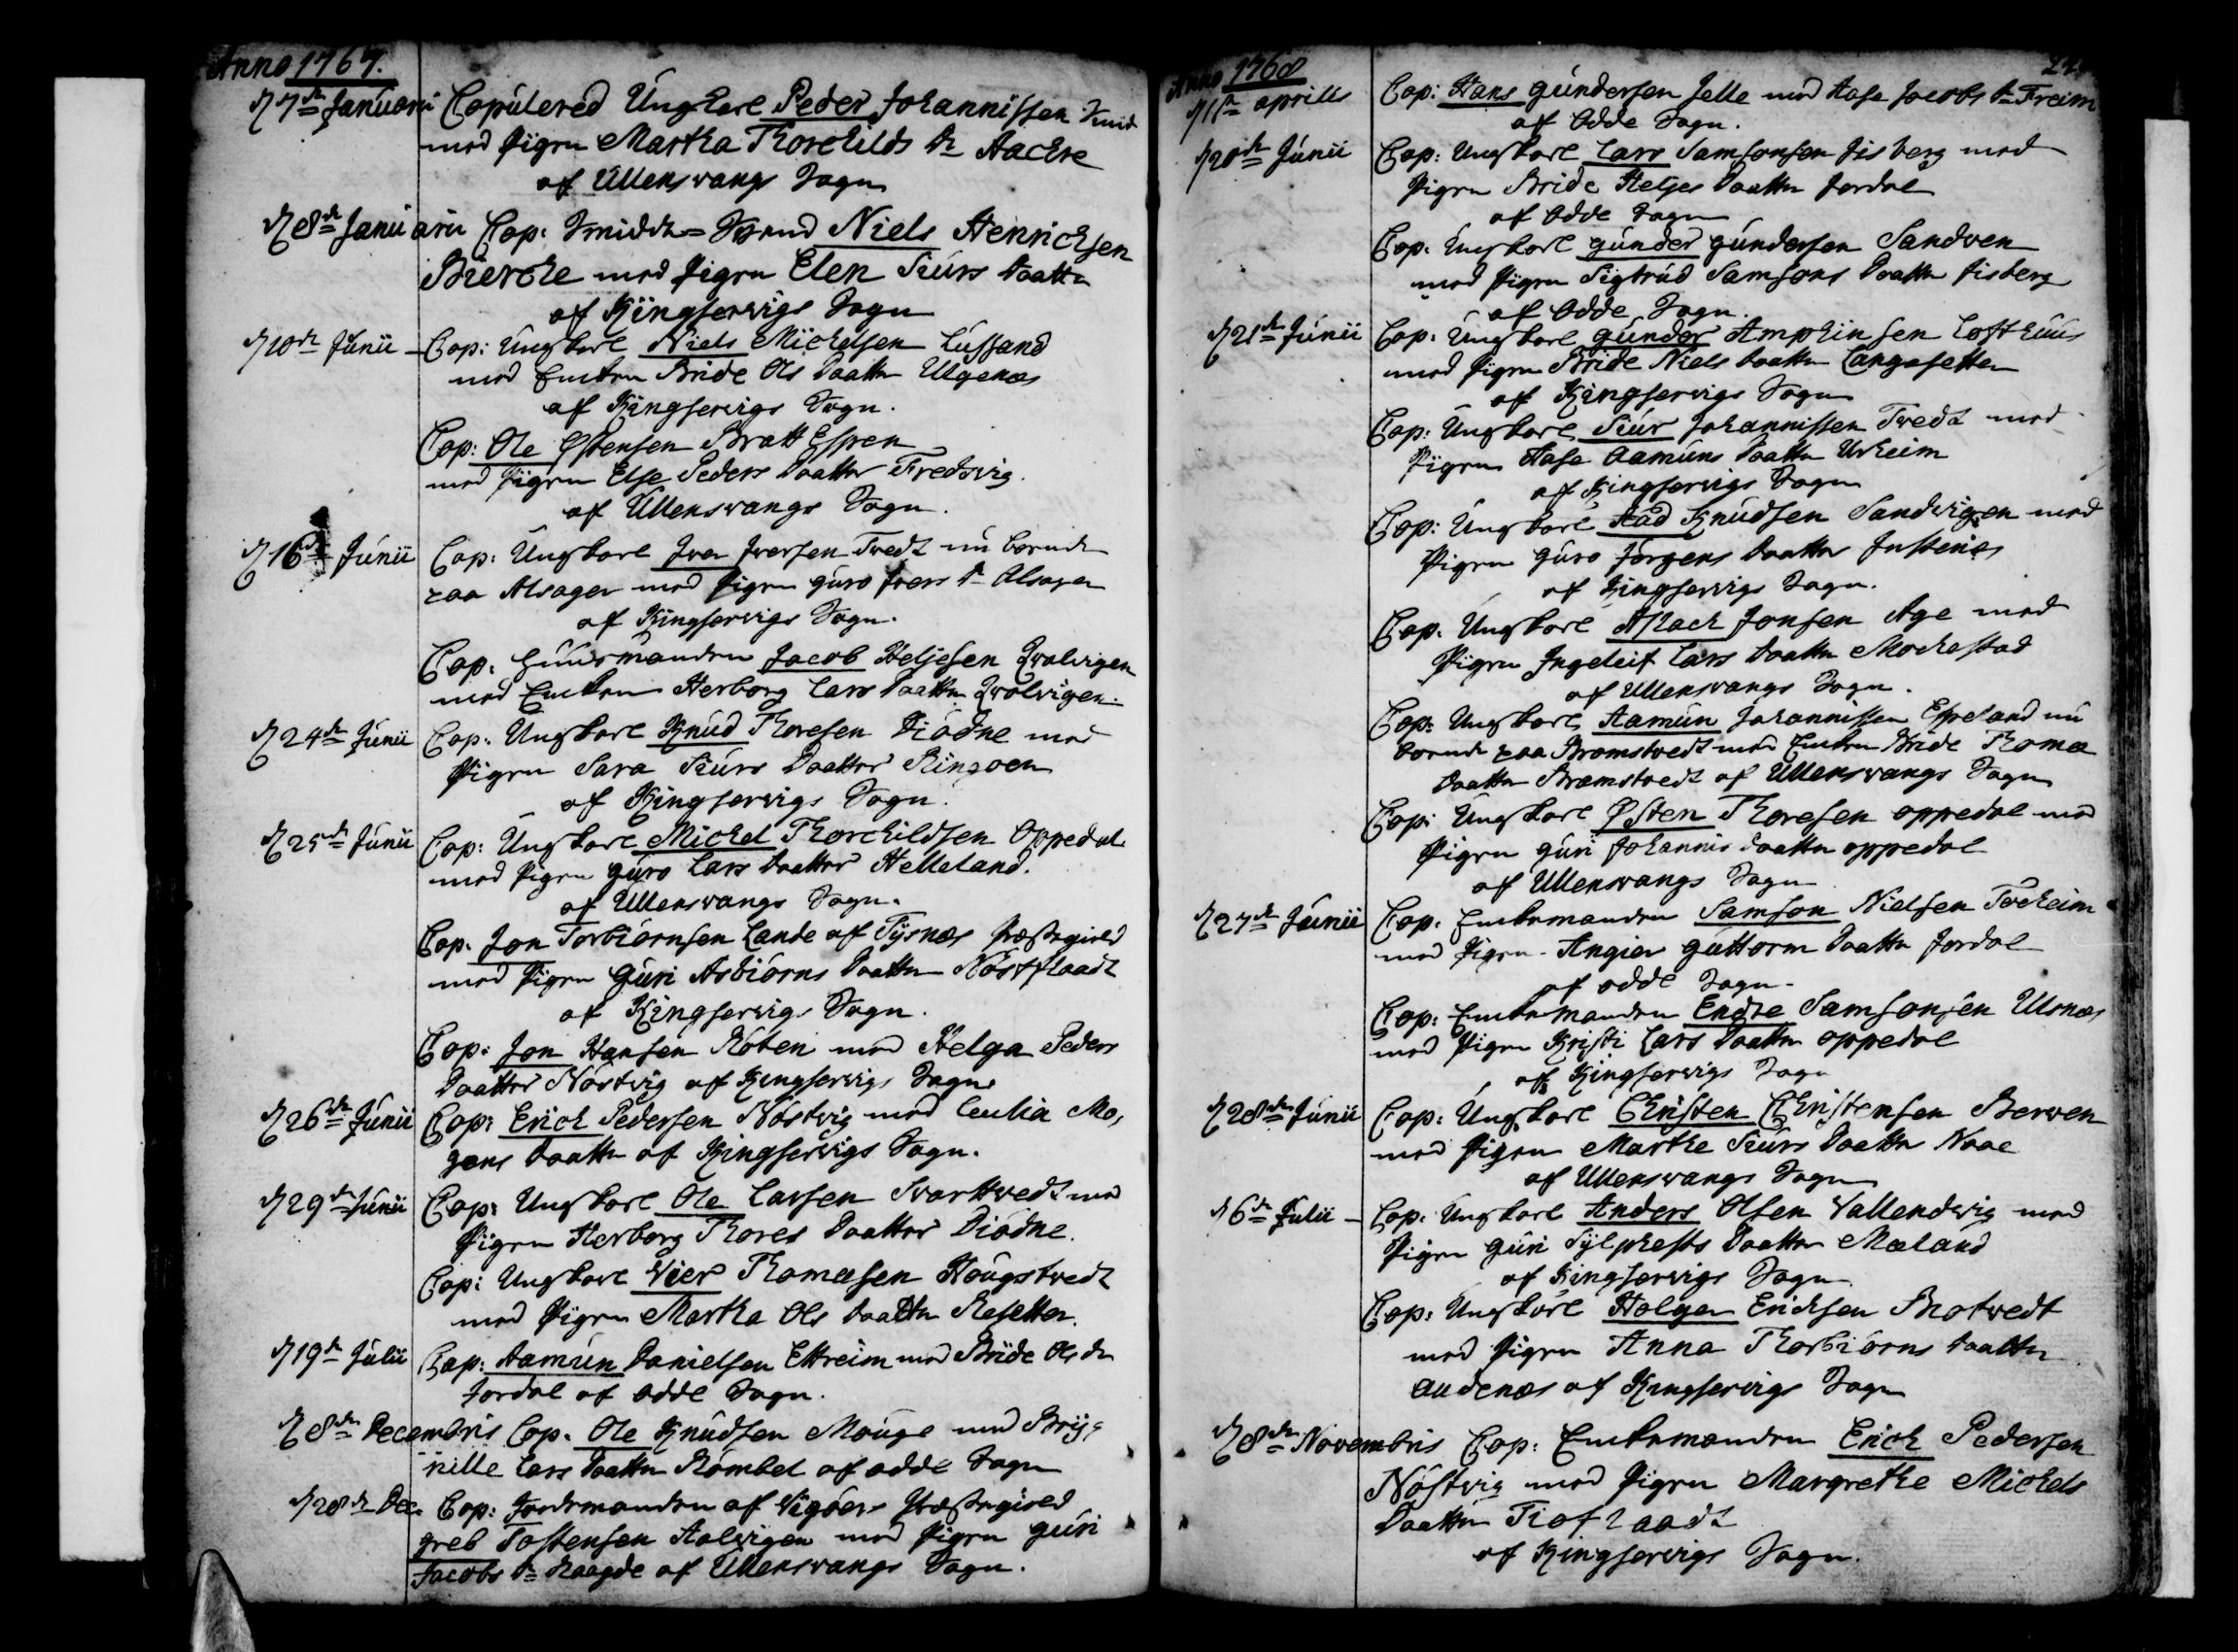 Anno 1767.
d 7de Januarii Copulered Ungkarl Peder Johannissen
med Pigen Martha Thorchilds Dr Aachre
af Ullensvangs Sogn
d 8de Januarii Cop: Niels Henrichsen
Bierche med Pigen Elen Siurs Daatter
af Kingservigs Sogn
d 10de Junii Cop: Ungkarl Niels Michelsen Lussand
med Enken Bride Ols Daatter Ulgenæs
af Kingservigs Sogn.
Cop: Ole Østensen Bratt Espen
med Pigen Else Peders Daatter Fredsvig
af Ullensvangs Sogn.
d 16de Junii Cop: Ungkarl Iver Iversen Tvedt nu boende
paa Alsager med Pigen Guro Ivers Dr Alsager
af Kingservigs Sogn.
Cop: Huusmanden Jacob Heljesen Qvalvigen
med Enken Herborg Lars Daatter Qvalvigen.
d 24de Junii Cop: Ungkarl Knud Thoresen Diødne med
Pigen Sara Siurs Daatter Ringoen
af Kingservigs Sogn.
d 25de Junii Cop: Ungkarl Michel Thorchildsen Oppedal
med Pigen Guro Lars Daatter Helleland.
af Ullensvangs Sogn.
Cop. Jon Torbiørnsen Lande af Tysnæs Præstegield
med Pigen Guri Asbiørns Daatter Nøstflaadt
af Kingservigs Sogn.
Cop: Jon Hansen Røten med Helga Peders
Daatter Nøstvig af Kingservigs Sogn
d 26de Junii Cop: Erich Pedersen Nøstvig med Ceulia Mo,
gens Daatter af Kingservigs Sogn.
d 29de Junii Cop: Ungkarl Ole Larsen Svarttvedt med
Pigen Herborg Thores Daatter Diødne.
Cop: Ungkarl Vier Thomæsen Hougstvedt
med Pigen Martha Ols Daatter Resetter.
d 19de Julii Cop: Aamun Danielsen Ettreim med Bride Ols dr
Jordal af Odde Sogn.
d 8de Decembris Cop. Ole Knudsen Mouge med Bry,
nille Lars Daatter Rømbel af Odde Sogn
d 28de Dec. Cop: af Vigøers Præstegield
greb Tostensen Aalvigen med Pigen Guri
Jacobs Dr Haagde af Ullensvangs Sogn.
Anno 1768
d 1ste Aprilis Cop: Hans Gundersen Jelle med Aase Jacobs Dr Freim
af Odde Sogn.
d 20de Junii Cop: Ungkarl Lars Samsonsen Jisberg med
Pigen Bride Heljes Daatter Jordal
af Odde Sogn
Cop: Ungkarl Gunder Gundersen Sandven
med Pigen Sigtrud Samsons Daatter Jisberg
af Odde Sogn.
d 21de Junii Cop: Ungkarl Gunder Amphinsen Lofthuus
med Pigen Bride Niels Daatter Langesetter
af Kingservigs Sogn
Cop: Ungkarl Siur Johannissen Tvedt med
Pigen Aase Aamuns Daatter Urheim
af Kingservigs Sogn
Cop: Ungkarl Aad Knudsen Sandvigen med
Pigen Guro Jørgens Daatter Justenæs
af Kingservigs Sogn.
Cop. Ungkarl Aslach Jonsen Age med
Pigen Ingeleif Lars Daatter Mochestad
af Ullensvangs Sogn.
Cop: Ungkarl Aamun Johannissen Espeland nu
boende paa Bramstvedt med Enken Bride Thomæ
Daatter Bramstvedt af Ullensvangs Sogn
Cop: Ungkarl Østen Thoresen oppedal med
Pigen Guri Johannis Daatter oppedal
af Ullensvangs Sogn
d 27de Junii Cop: Enkemanden Samson Nielsen Tocheim
med Pigen Angier Guttorm Daatter Jordal
af odde Sogn.
Cop: Enkemanden Endre Samsonsen Ulsnæs
med Pigen Kristi Lars Daatter oppedal
af Kingservigs Sogn
d 28de Junii Cop: Ungkarl Christen Christensen Berven
med Pigen Marthe Siurs Daatter Naae
af Ullensvangs Sogn
d 6te Julii Cop: Ungkarl Anders Olsen Vallendvig med
Pigen Guri Sylphests Daatter Mæland
af Kingservigs Sogn
Cop: Ungkarl Holger Erichsen Brotvedt
med Pigen Anna Thorbiørns Daatter
Audenæs af Kingservigs Sogn
d 8de Novembris Cop: Enkemanden Erich Pedersen
Nøstvig med Pigen Margrethe Michels
Daatter Tioflaadt
af Kingservigs Sogn.